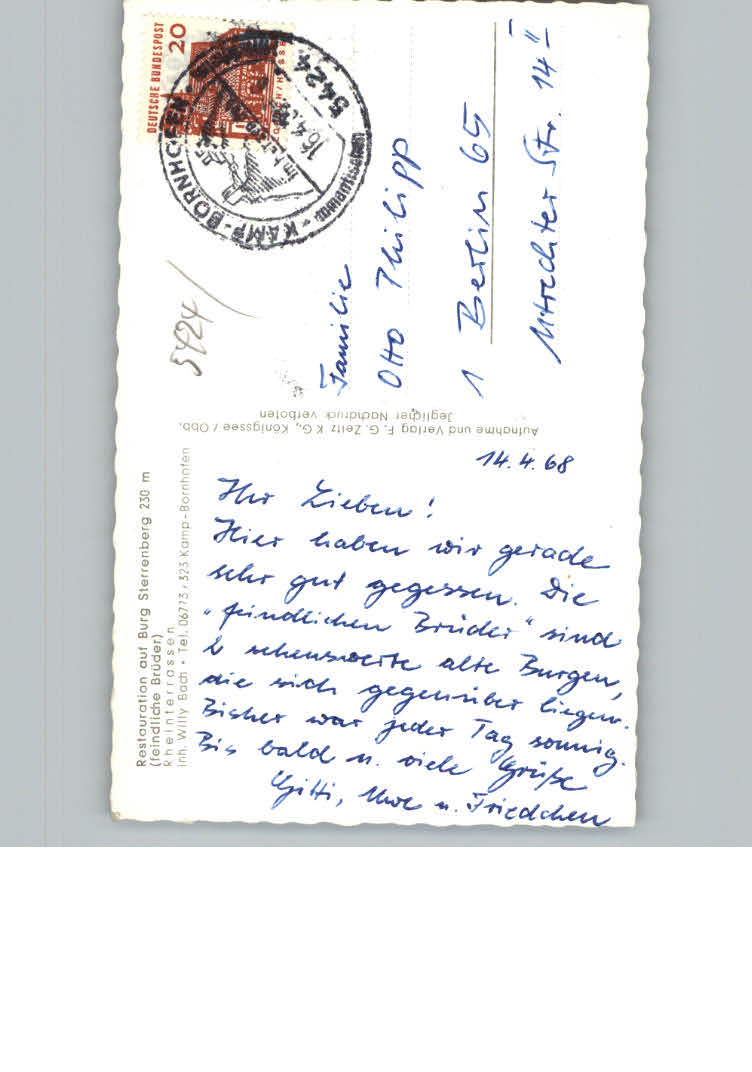 Restauration auf Burg Sterrenberg 230 m
(feindliche Brüder)
Rheinterrassen
Inh. Willy Bach • Tel. 06773 / 323 Kamp-Bornhofen
14.4.68
Ihr Lieben!
Hier haben wir gerade
sehr gut gegessen. Die
"feindlichen Brüder" sind
2 sehenswerte alte Burgen,
die sich gegenüber liegen.
Bisher war jeder Tag sonnig.
Bis bald u. viele Grüße
Gitti, Uwe u. Friedchen
Aufnahme und Verlag F. G. Zeitz KG., Königssee / Obb.
Jeglicher Nachdruck verboten
DEUTSCHE BUNDESPOST
20
5424
KAMP-BORNHOFEN
romantischen
5424
Familie
Otto Philipp
1 Berlin 65
Utrechter Str. 14 II